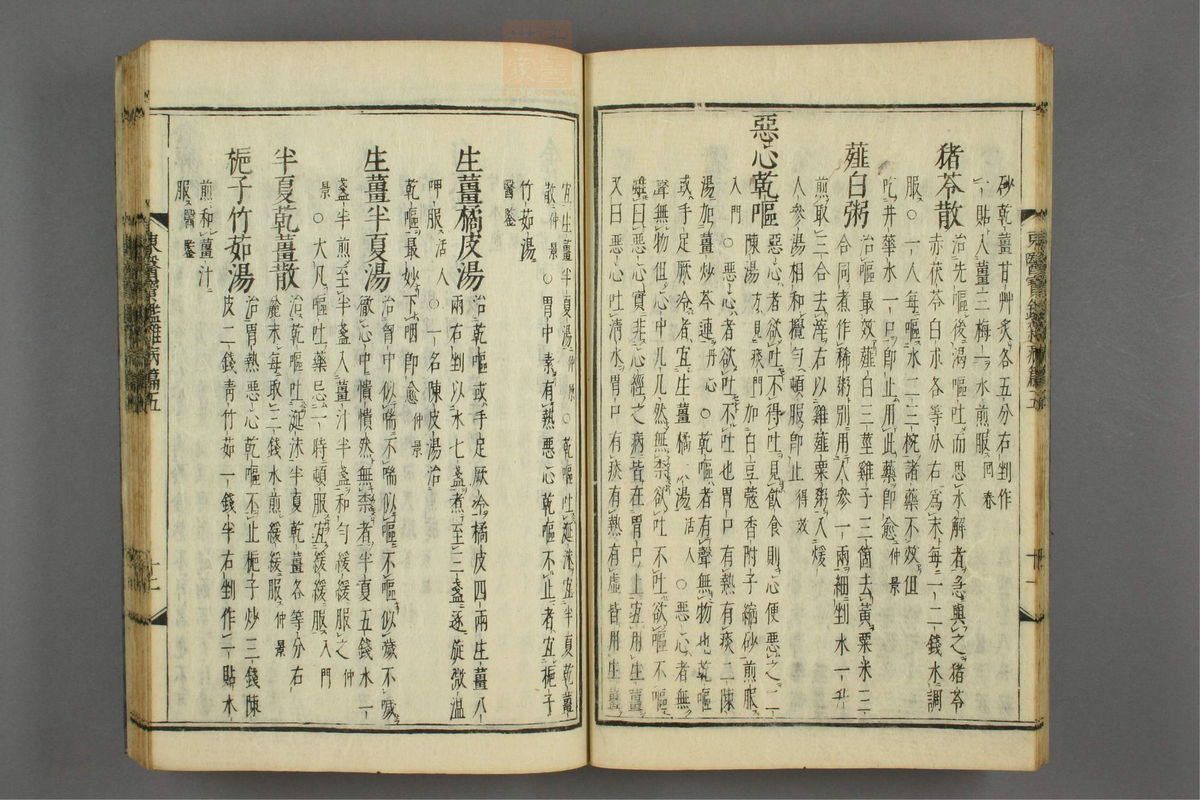 砂乾薑甘艸炙各五分右剉作
一貼入薑三梅一水煎服回春
猪苓散
治先嘔後渴嘔吐而思水解者急與之猪苓
赤茯苓白朮各等分右為末每二錢水調
服○一人每嘔水二三椀諸藥不效但
吃井華水一口即止用此藥即愈仲景
薤白粥
治嘔最效薤白三莖雞子三箇去黃粟米三
合同煮作稀粥別用人參一兩細剉水一升
煎取三合去滓右以雞薤粟粥入煖
人參湯相和攪勻頓服即止得效
惡心乾嘔
惡心者欲吐不得吐見飲食則心便惡之二
陳湯方見痰門加白豆蔻香附子縮砂煎服
入門○惡心者欲吐不吐也胃口有熱有痰二陳
湯加薑炒芩連丹心○乾嘔者有聲無物也乾嘔
或手足厥冷者宜生薑橘湯活人○惡心者無
聲無物但心中兀兀然無禁欲吐不吐欲嘔不嘔
雖曰惡心實非心經之病皆在胃口上宜用生薑
又曰惡心吐清水胃口有痰有熱有虛皆用生薑
宜生薑半夏湯仲景○乾嘔吐涎沫宜半夏乾薑
散仲景○胃中素有熱惡心乾嘔不止者宜梔子
竹茹湯
醫鑒
生薑橘皮湯
治乾嘔或手足厥冷橘皮四兩生薑八
兩右剉以水七盞煮至三盞逐旋微溫
呷服活人○一名陳皮湯治
乾嘔最妙下咽即愈仲景
生薑半夏湯
治胃中似喘不喘似嘔不嘔似噦不噦
徹心中憒憒然無禁者半夏五錢水一
盞半煎至半盞入薑汁半盞和勻緩緩服之仲
景○大凡嘔吐藥忌一時頓服宜緩緩服入門
半夏乾薑散
治乾嘔吐涎沫半夏乾薑各等分右
麁末每取三錢水煎緩緩服仲景
梔子竹茹湯
治胃熱惡心乾嘔不止梔子炒三錢陳
皮二錢靑竹茹一錢半右剉作一貼水
煎和薑汁
服醫鑒
東醫寶鑑雜病篇五